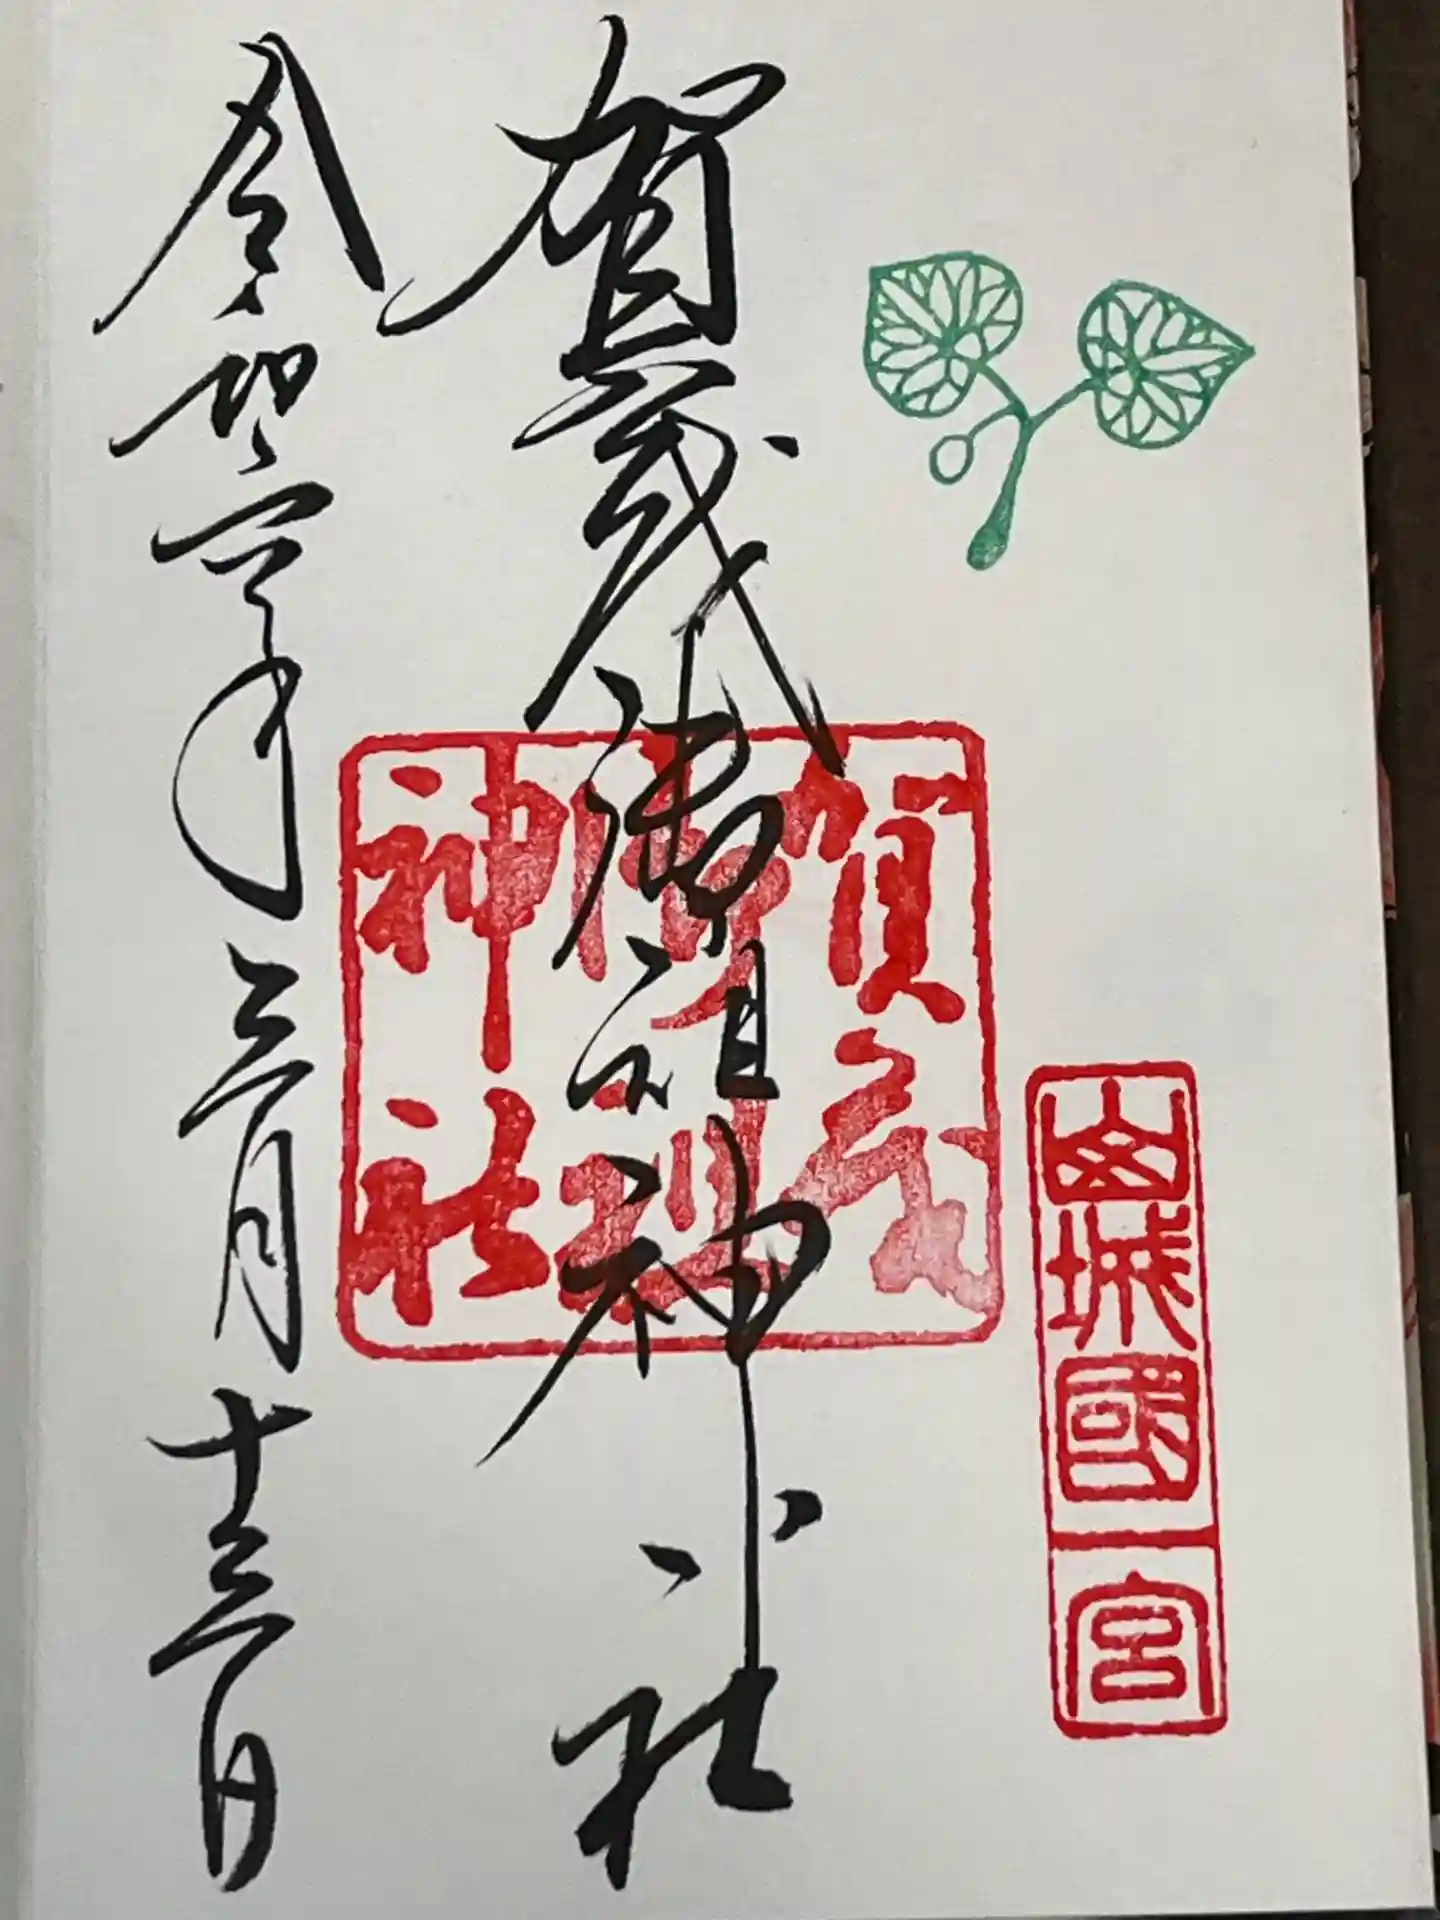 山城國一宮
賀茂御祖神社
賀茂
御祖
神社
令和年三月十三日